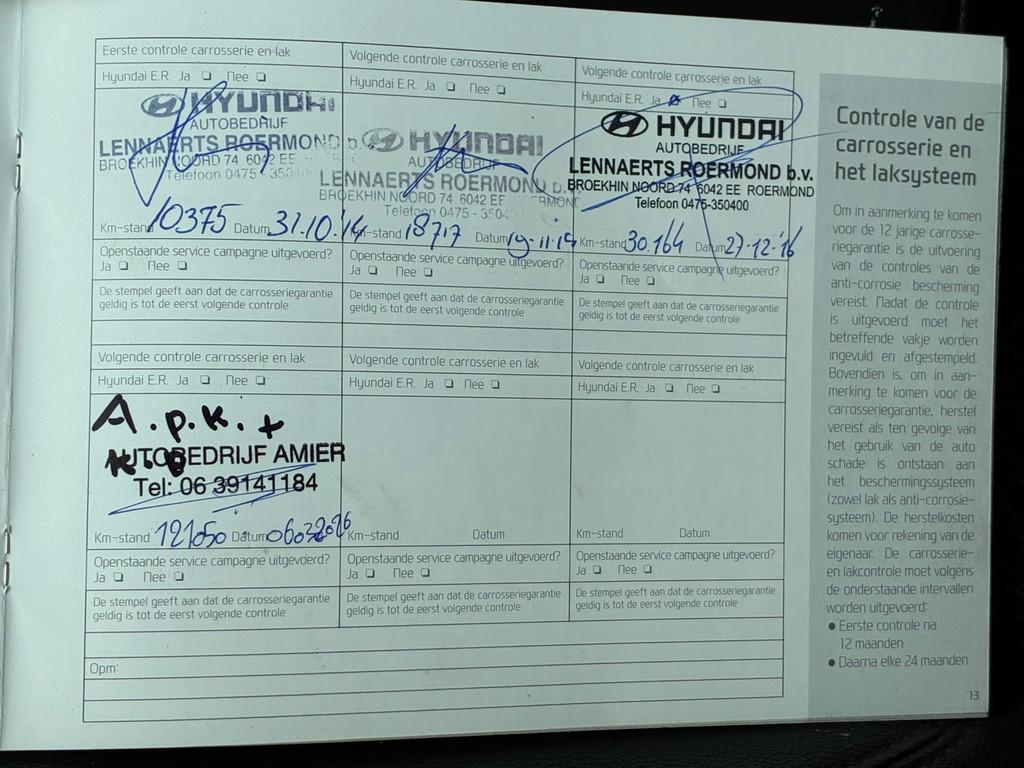 Eerste controle carrosserie en lak
Hyundai E.R. Ja ☐ Nee ☐
HYUNDAI
AUTOBEDRIJF
LENNAERTS ROERMOND b.v.
BROEKHIN NOORD 74 6042 EE
Telefoon 0475-350
Km-stand 10375 Datum 31.10.'14
Openstaande service campagne uitgevoerd?
Ja ☐ Nee ☐
De stempel geeft aan dat de carrosseriegarantie
geldig is tot de eerst volgende controle
Volgende controle carrosserie en lak
Hyundai E.R. Ja ☐ Nee ☐
HYUNDAI
AUTOBEDRIJF
LENNAERTS ROERMOND b.v.
BROEKHIN NOORD 74 6042 EE ROERMOND
Telefoon 0475 - 350
Km-stand 18717 Datum
Openstaande service campagne uitgevoerd?
Ja ☐ Nee ☐
De stempel geeft aan dat de carrosseriegarantie
geldig is tot de eerst volgende controle
Volgende controle carrosserie en lak
Hyundai E.R. Ja ☒ Nee ☐
HYUNDAI
AUTOBEDRIJF
LENNAERTS ROERMOND b.v.
BROEKHIN NOORD 74 6042 EE ROERMOND
Telefoon 0475-350400
Km-stand 30.164 Datum 27-12-'16
Openstaande service campagne uitgevoerd?
Ja ☐ Nee ☐
De stempel geeft aan dat de carrosseriegarantie
geldig is tot de eerst volgende controle
Volgende controle carrosserie en lak
Hyundai E.R. Ja ☐ Nee ☐
A.p.K. +
AUTOBEDRIJF AMIER
Tel: 06 39141184
Km-stand 121050 Datum
Openstaande service campagne uitgevoerd?
Ja ☐ Nee ☐
De stempel geeft aan dat de carrosseriegarantie
geldig is tot de eerst volgende controle
Volgende controle carrosserie en lak
Hyundai E.R. Ja ☐ Nee ☐
Km-stand Datum
Openstaande service campagne uitgevoerd?
Ja ☐ Nee ☐
De stempel geeft aan dat de carrosseriegarantie
geldig is tot de eerst volgende controle
Volgende controle carrosserie en lak
Hyundai E.R. Ja ☐ Nee ☐
Km-stand Datum
Openstaande service campagne uitgevoerd?
Ja ☐ Nee ☐
De stempel geeft aan dat de carrosseriegarantie
geldig is tot de eerst volgende controle
Opm:
Controle van de
carrosserie en
het laksysteem
Om in aanmerking te komen
voor de 12 jarige carrosse-
riegarantie is de uitvoering
van de controles van de
anti-corrosie bescherming
vereist. Nadat de controle
is uitgevoerd moet het
betreffende vakje worden
ingevuld en afgestempeld.
Bovendien is, om in aan-
merking te komen voor de
carrosseriegarantie, herstel
vereist als ten gevolge van
het gebruik van de auto
schade is ontstaan aan
het beschermingssysteem
(zowel lak als anti-corrosie-
systeem). De herstelkosten
komen voor rekening van de
eigenaar. De carrosserie-
en lakcontrole moet volgens
de onderstaande intervallen
worden uitgevoerd:
● Eerste controle na
12 maanden
● Daarna elke 24 maanden
13